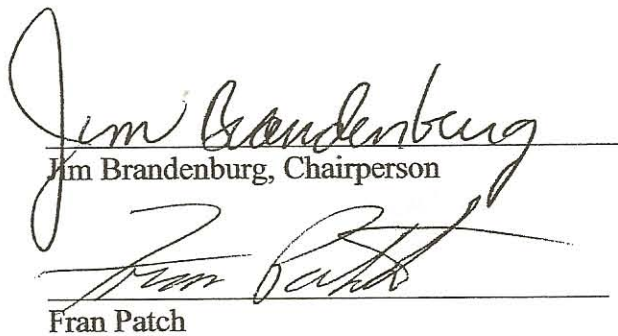 Jim Brandenburg
Jim Brandenburg, Chairperson
Fran Patch
Fran Patch